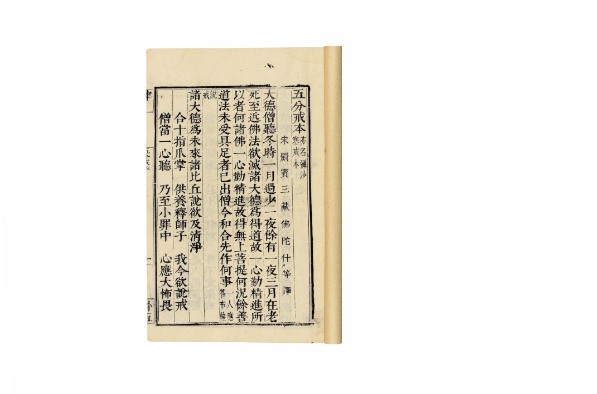 五分戒本亦名彌沙塞戒本
宋罽賓三藏佛陀什等譯
大德僧聽冬時一月過少一夜餘有一夜三月在老
死至近佛法欲滅諸大德為得道故一心勤精進所
以者何諸佛一心勤精進故得無上菩提何況餘善
道法未受具足者已出僧今和合先作何事
諸大德為未來諸比丘說欲及清淨
合十指爪掌 供養釋師子 我今欲說戒
僧當一心聽 乃至小罪中 心應大怖畏